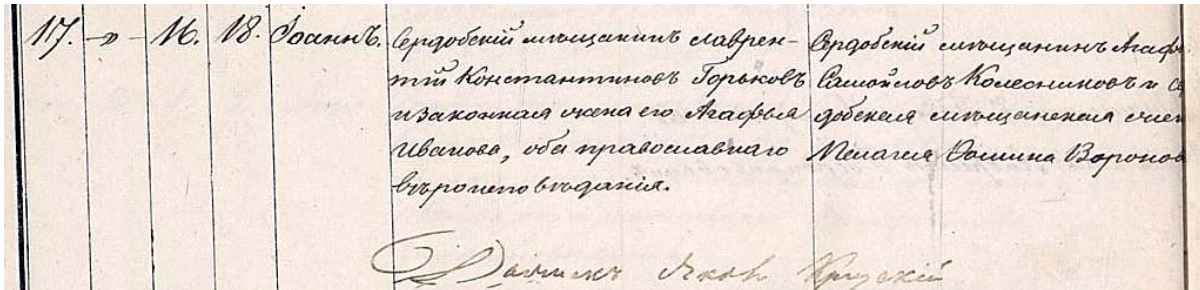 117. -»- 16. 18. Іоаннъ.
Сердобскій мѣщанинъ Лаврен-
тій Константиновъ Горьковъ
и законная жена его Агафья
Иванова, оба православнаго
вѣроисповѣданія.
Сердобскій мѣщанинъ Агаф
Самойловъ Колесниковъ и се
добская мѣщанская
Пелагея Фомина Воронов
Яковъ